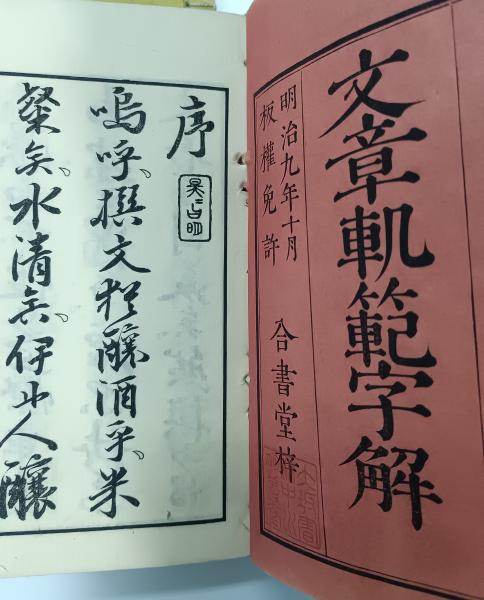 文章軌範字解
明治九年十月
板權免許
合書堂梓
序
嗚呼撰文猶釀酒乎米
粲矣水清矣伊丹人釀